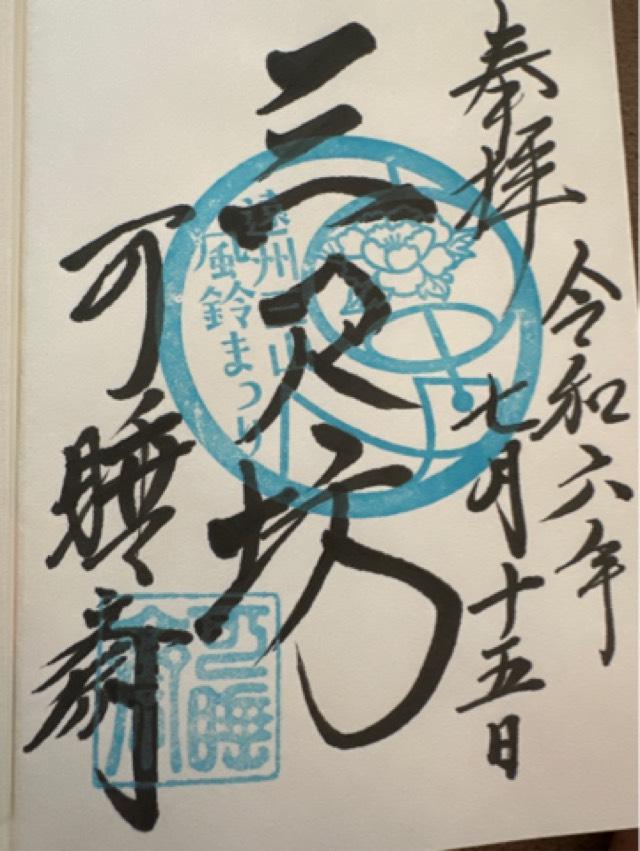 奉拝
令和六年
七月十五日
三尺坊
遠州三山
風鈴まつり
可睡斎
可睡
斎